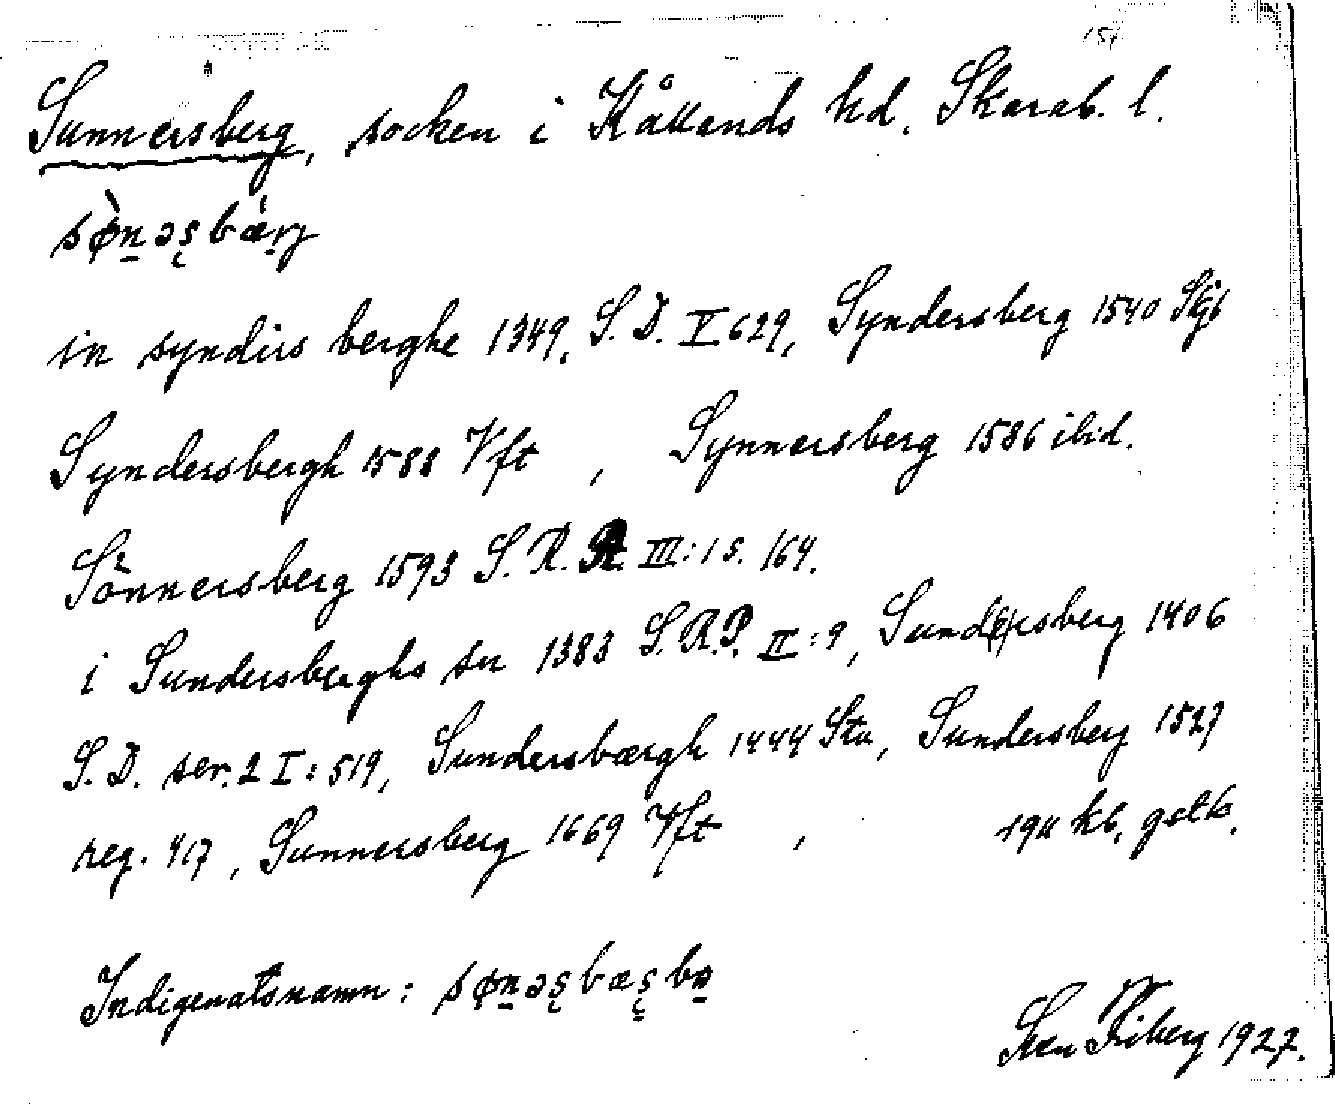 Sunnersberg, socken i Kållands hd. Skarab. l.
sø̀n̠əʂbǽrj
in syndirs berghe 1349. S. D. V 629, Syndersberg 1540 Skjb
Syndersbergh 1588 Vft , Synnersberg 1586 ibid.
Sönnersberg 1593 S. R. A. III:1 s. 164.
i Sundersberghs sn 1383 S.R.P. II:9, Sundersberg 1406
S.D. ser. 2 I:519, Sundersbærgh 1444 Sta, Sundersberg 1527
reg. 417, Sunnersberg 1669 Vft , 1911 kb. gstb.
Indigenatsnamn: søn̠əʂbæʂbo
Sten Friberg 1927.